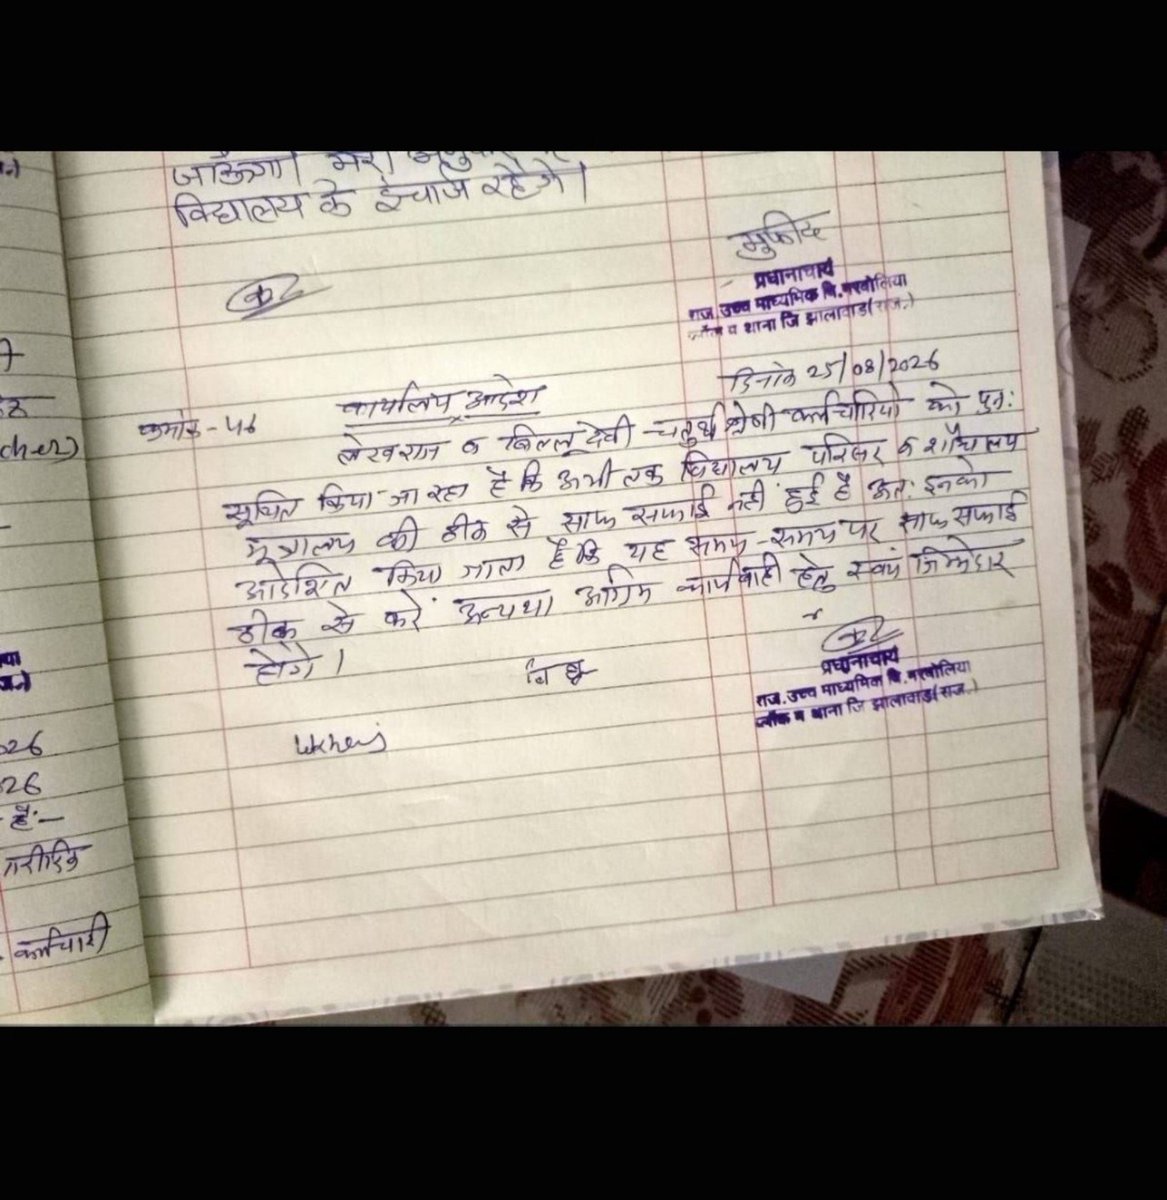 जाऊँगा। मेरी
विद्यालय के इंचार्ज रहेगे।
मुफीद
प्रधानाचार्य
राज. उच्च माध्यमिक वि. बरबोलिया
ब्लॉक व थाना जि झालावाड़ (राज.)
दिनांक 25/08/2026
कार्यालय आदेश
क्रमांक - 56
लेखराज व बिल्लू देवी चतुर्थ श्रेणी कर्मचारियो को पुनः
सूचित किया जा रहा है कि अभी तक विद्यालय परिसर व शौचालय
मूत्रालय की ठीक से साफ सफाई नहीं हुई है अतः इनको
आदेशित किया जाता है कि यह समय-समय पर साफ सफाई
ठीक से करें अन्यथा अग्रिम कार्यवाही हेतु स्वयं जिम्मेदार
होंगे।
प्रधानाचार्य
राज. उच्च माध्यमिक वि. बरबोलिया
ब्लॉक व थाना जि झालावाड़ (राज.)
cher)
26
26
है:-
कर्मचारी